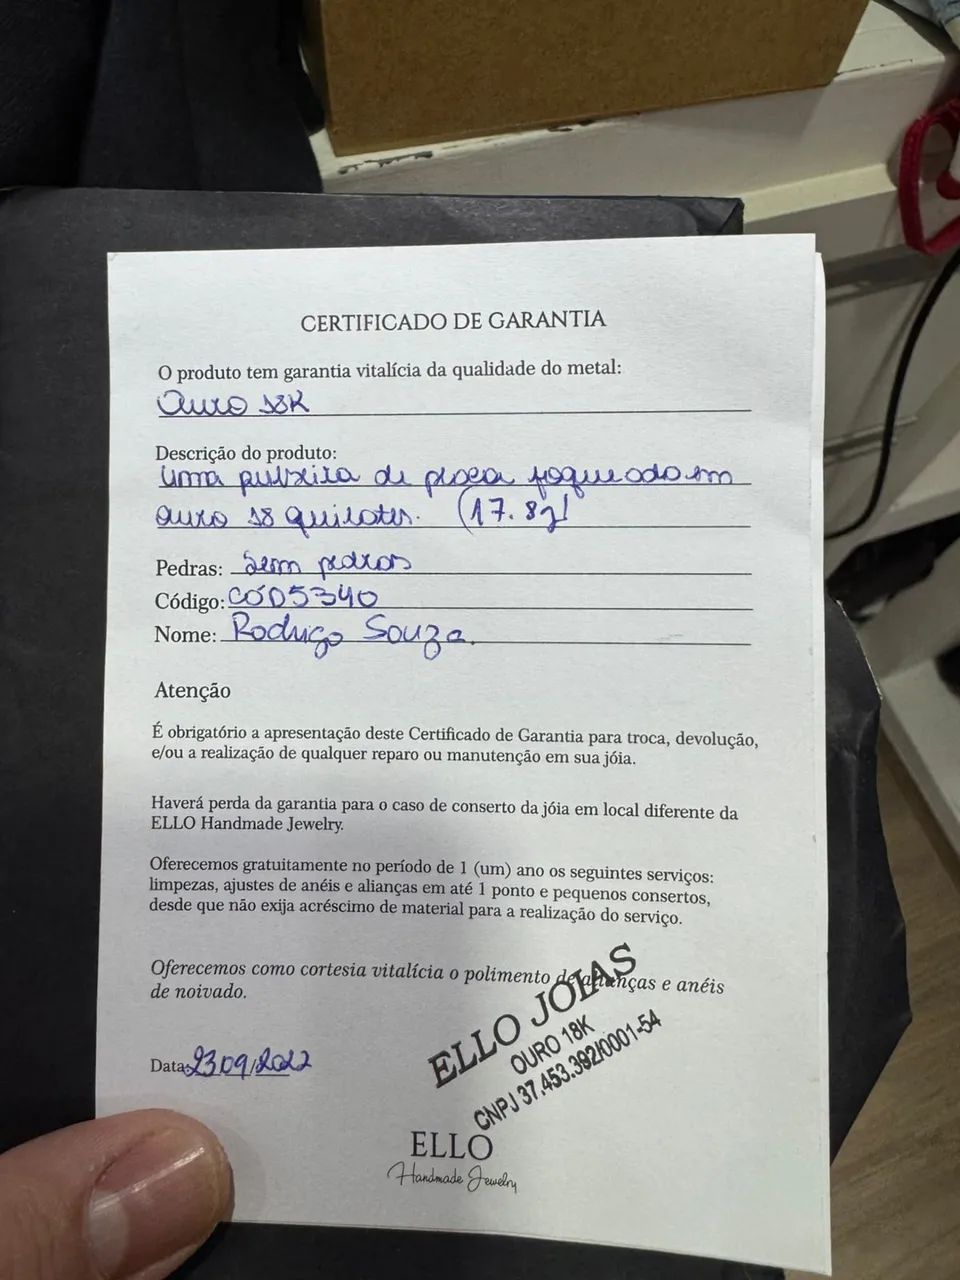 CERTIFICADO DE GARANTIA
O produto tem garantia vitalícia da qualidade do metal:
Ouro 18K
Descrição do produto:
uma pulseira de placa foqueado em
ouro 18 quilates. (17.8g)
Pedras: Sem pedras
Código: CÓD5340
Nome: Rodrigo Souza.
Atenção
É obrigatório a apresentação deste Certificado de Garantia para troca, devolução,
e/ou a realização de qualquer reparo ou manutenção em sua jóia.
Haverá perda da garantia para o caso de conserto da jóia em local diferente da
ELLO Handmade Jewelry.
Oferecemos gratuitamente no período de 1 (um) ano os seguintes serviços:
limpezas, ajustes de anéis e alianças em até 1 ponto e pequenos consertos,
desde que não exija acréscimo de material para a realização do serviço.
Oferecemos como cortesia vitalícia o polimento de alianças e anéis
de noivado.
ELLO JOIAS
OURO 18K
CNPJ 37.453.392/0001-54
Data: 23/09/2022
ELLO
Handmade Jewelry